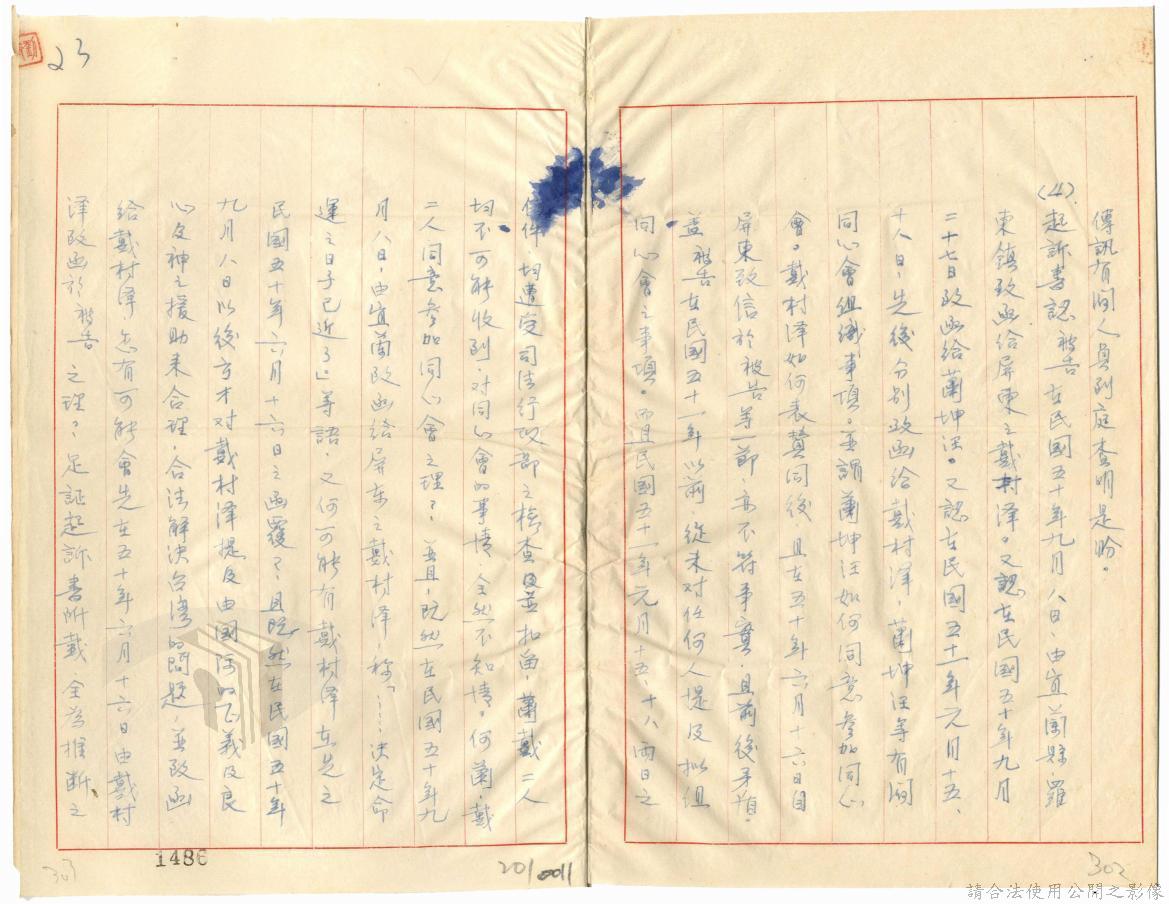 302
傳訊有關人員到庭查明是盼。
(4).起訴書認被告在民國五十年九月八日,由宜蘭縣羅
東鎮致函給屏東之戴村澤。又認在民國五十年九月
二十七日致函給蕭坤汪。又認在民國五十一年元月十五、
十八日,先後分別致函給戴村澤,蕭坤汪等有關
同心會組織事項。並謂蕭坤汪如何同意參加同心
會。戴村澤如何表贊同後,且在五十年六月十六日自
屏東致信於被告等一節,亦不符事實,且前後矛盾。
蓋被告在民國五十一年以前,從未對任何人提及拟組
同心會之事項。而且民國五十一年元月十五、十八兩日之
信件,均遭受司法行政部之檢查及並扣留,蕭戴二人
均不可能收到,對同心會的事情,全然不知情。何蕭、戴
二人同意參加同心會之理?並且,既然在民國五十年九
月八日,由宜蘭致函給屏东之戴村澤,稱「……決定命
運之日子已近了」等語,又何可能有戴村澤在先之
民國五十年六月十六日之函覆?且既然在民國五十年
九月八日以後方才对戴村澤提及由國际的正義及良
心及神之援助来合理,合法解決台湾的問題,並致函
給戴村澤,怎有可能會先在五十年六月十六日由戴村
澤致函於被告之理?足証起訴書所載全為推断之
23
303
1486
201
0011
請合法使用公開之影像